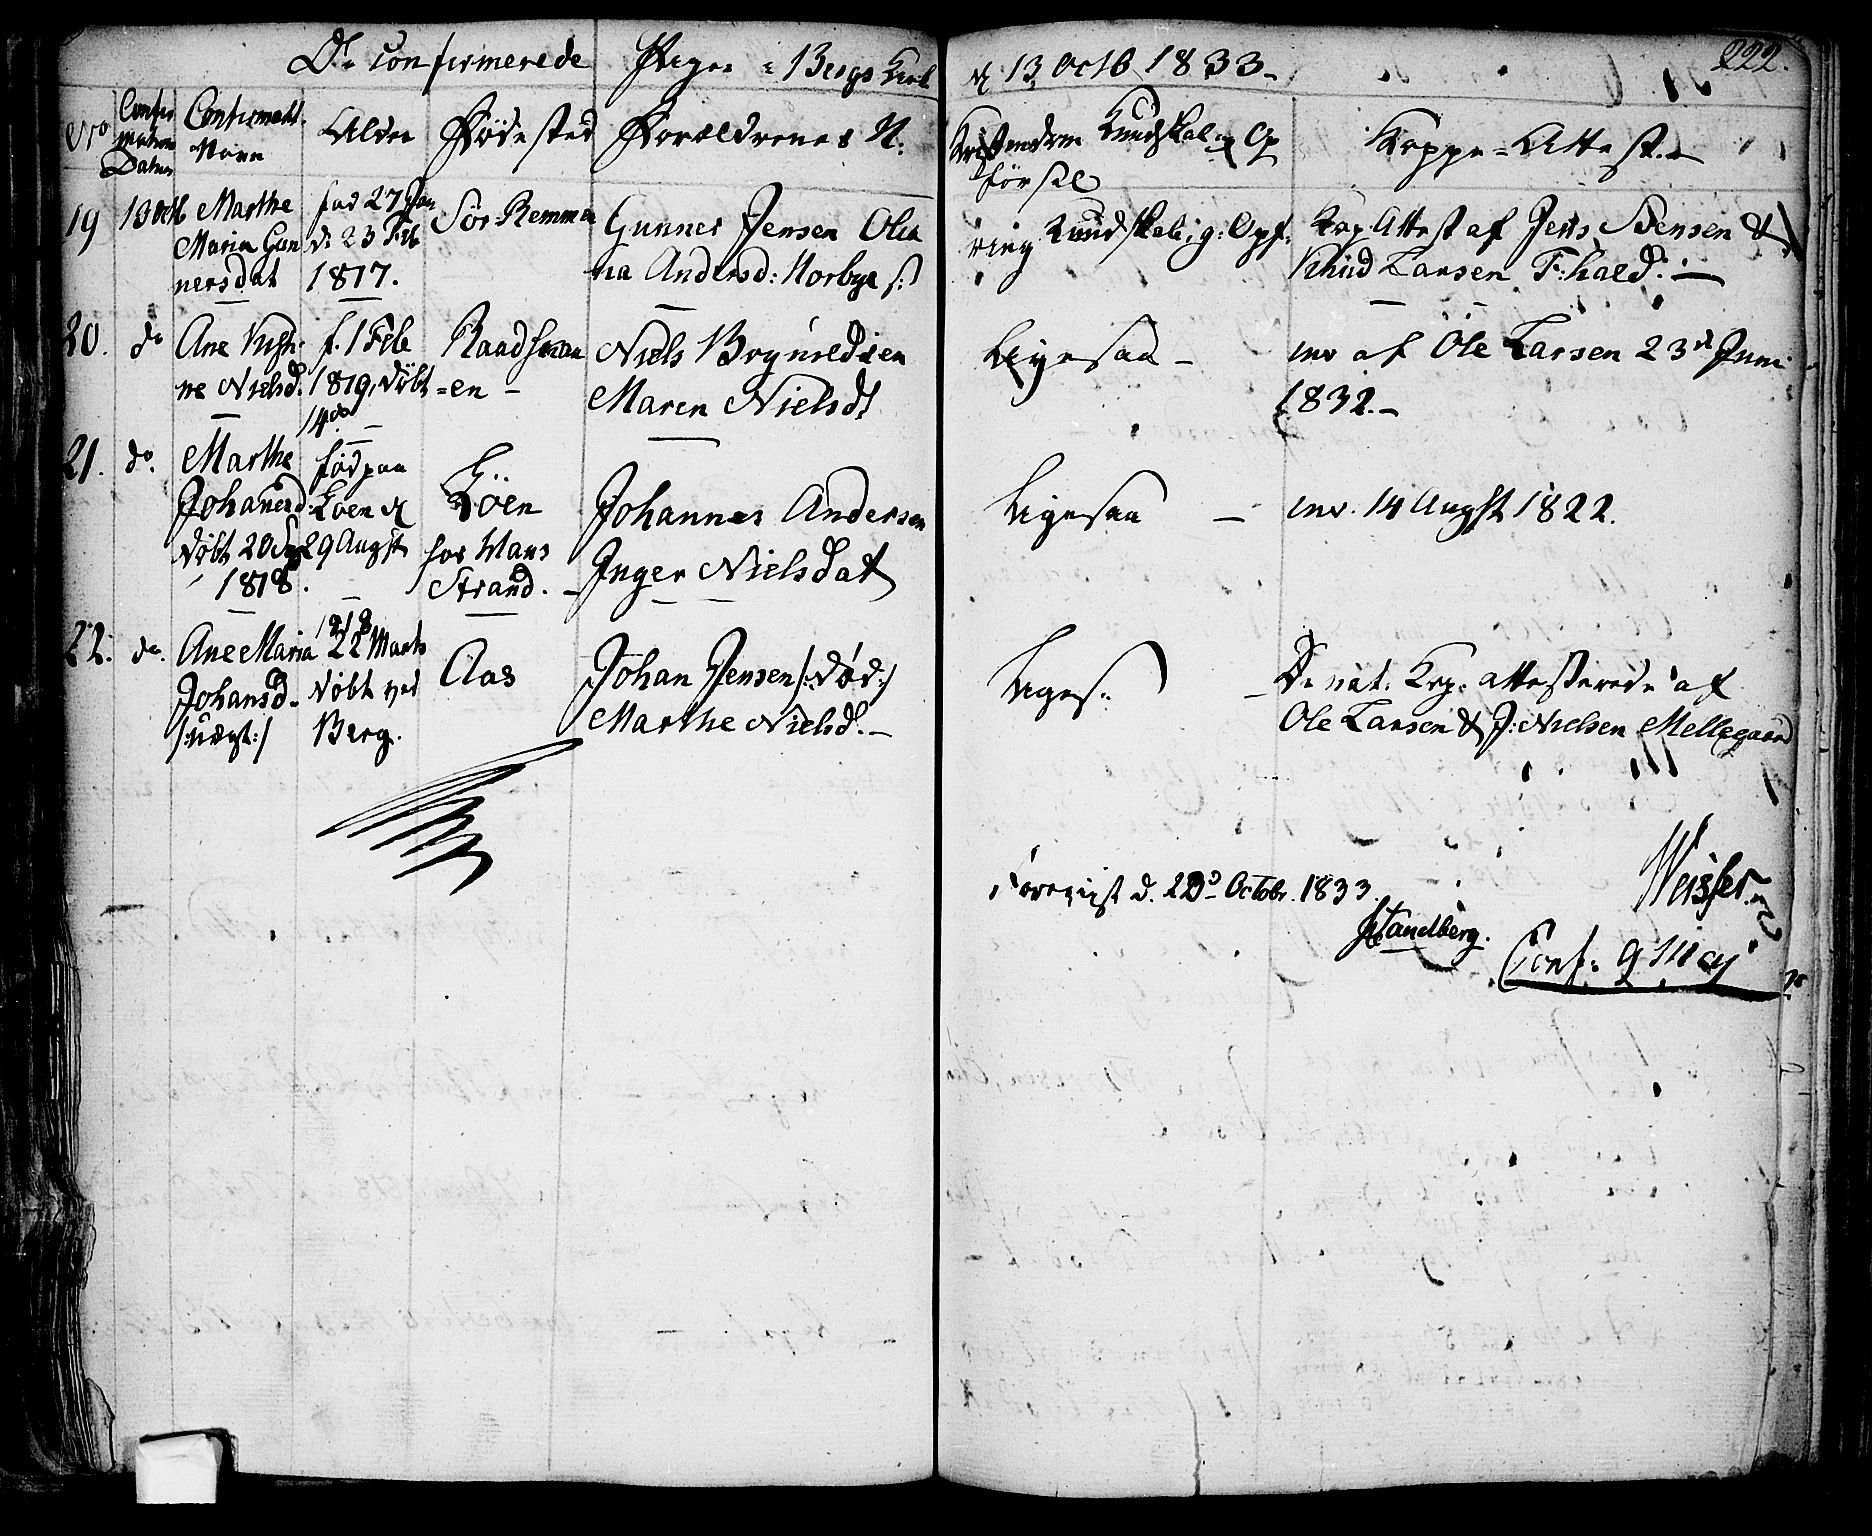 De confirmerede Piger i Bergs Kirk
d 13 Octb 1833.
222.
No
Confirmations Datum
Confirmatt. Navn
Alder
Fødested
Forældrenes N.
Kristendom Kundskab og Opførsel
Koppe-Attest.
19
13 Octb
Marthe
Maria Gun
nersdat
fød 27 Jan
d: 23 Feb
1817.
Sør Remmen
Gunner Jensen Olea
na Andersd: Norbye
ring Kundskab, g: Opf.
Kop Attest af Jens Svensen &
Knud Larsen F:hald.
20.
do
Ane
ne Nielsd.
f. 1 Feb
1819, døbt
14 do
en
Niels
Maren Nielsdt
Ligesaa
inv af Ole Larsen 23 d Juni
1832.
21.
do.
Marthe
Johanesd.
døbt 20 Sep
1818.
fød paa
Løen d
29 Augst
Løen
for Hans
Strand.
Johannes Andersen
Inger Nielsdat
Ligesaa
inv. 14 Augst 1822.
22.
do.
Ane Maria
Johansd.
/:uægt:/
1818
22 Marts
døbt ved
Berg.
Aas
Johan Jensen /:død:/
Marthe Nielsd.
Liges.
De nat. Kop. attesterede af
Ole Larsen & J: Nielsen Mellegaard
Foreviist d. 23d Octobr. 1833.
Standberg.
Conf. 9 Maj